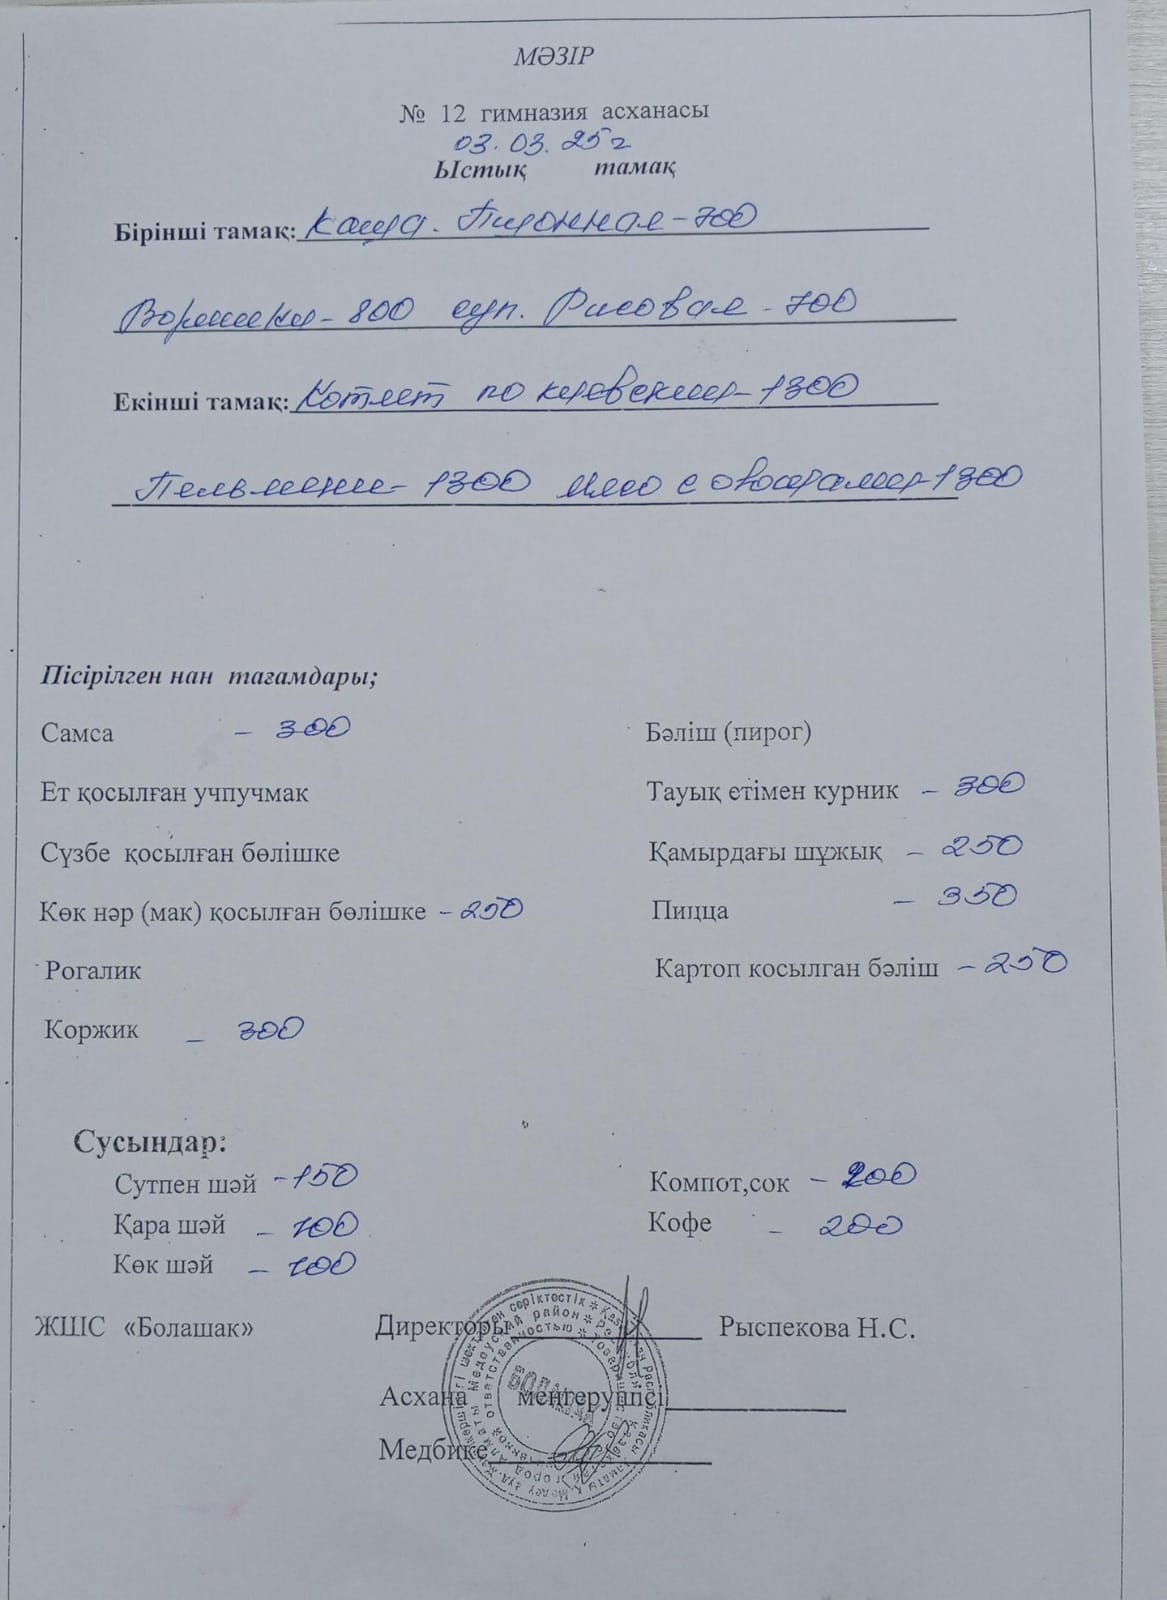 МӘЗІР
№ 12 гимназия асханасы
03.03.25г
Ыстық тамақ
Бірінші тамақ: Каша. Пшонная - 700
- 800 суп. Рисовая - 700
Екінші тамақ: Котлет по киевский - 1300
Пельмени - 1300 мясо с овощами - 1300
Пісірілген нан тағамдары;
Самса - 300 Бәліш (пирог)
Ет қосылған учпучмак Тауық етімен курник - 300
Сүзбе қосылған бөлішке Қамырдағы шұжық - 250
Көк нәр (мак) қосылған бөлішке - 250 Пицца - 350
Рогалик Картоп косылган бәліш - 250
Коржик - 300
Сусындар:
Сутпен шәй - 150 Компот,сок - 200
Қара шәй - 100 Кофе - 200
Көк шәй - 100
ЖШС «Болашак» Директоры Рыспекова Н.С.
Асхана меңгерушісі
Медбике